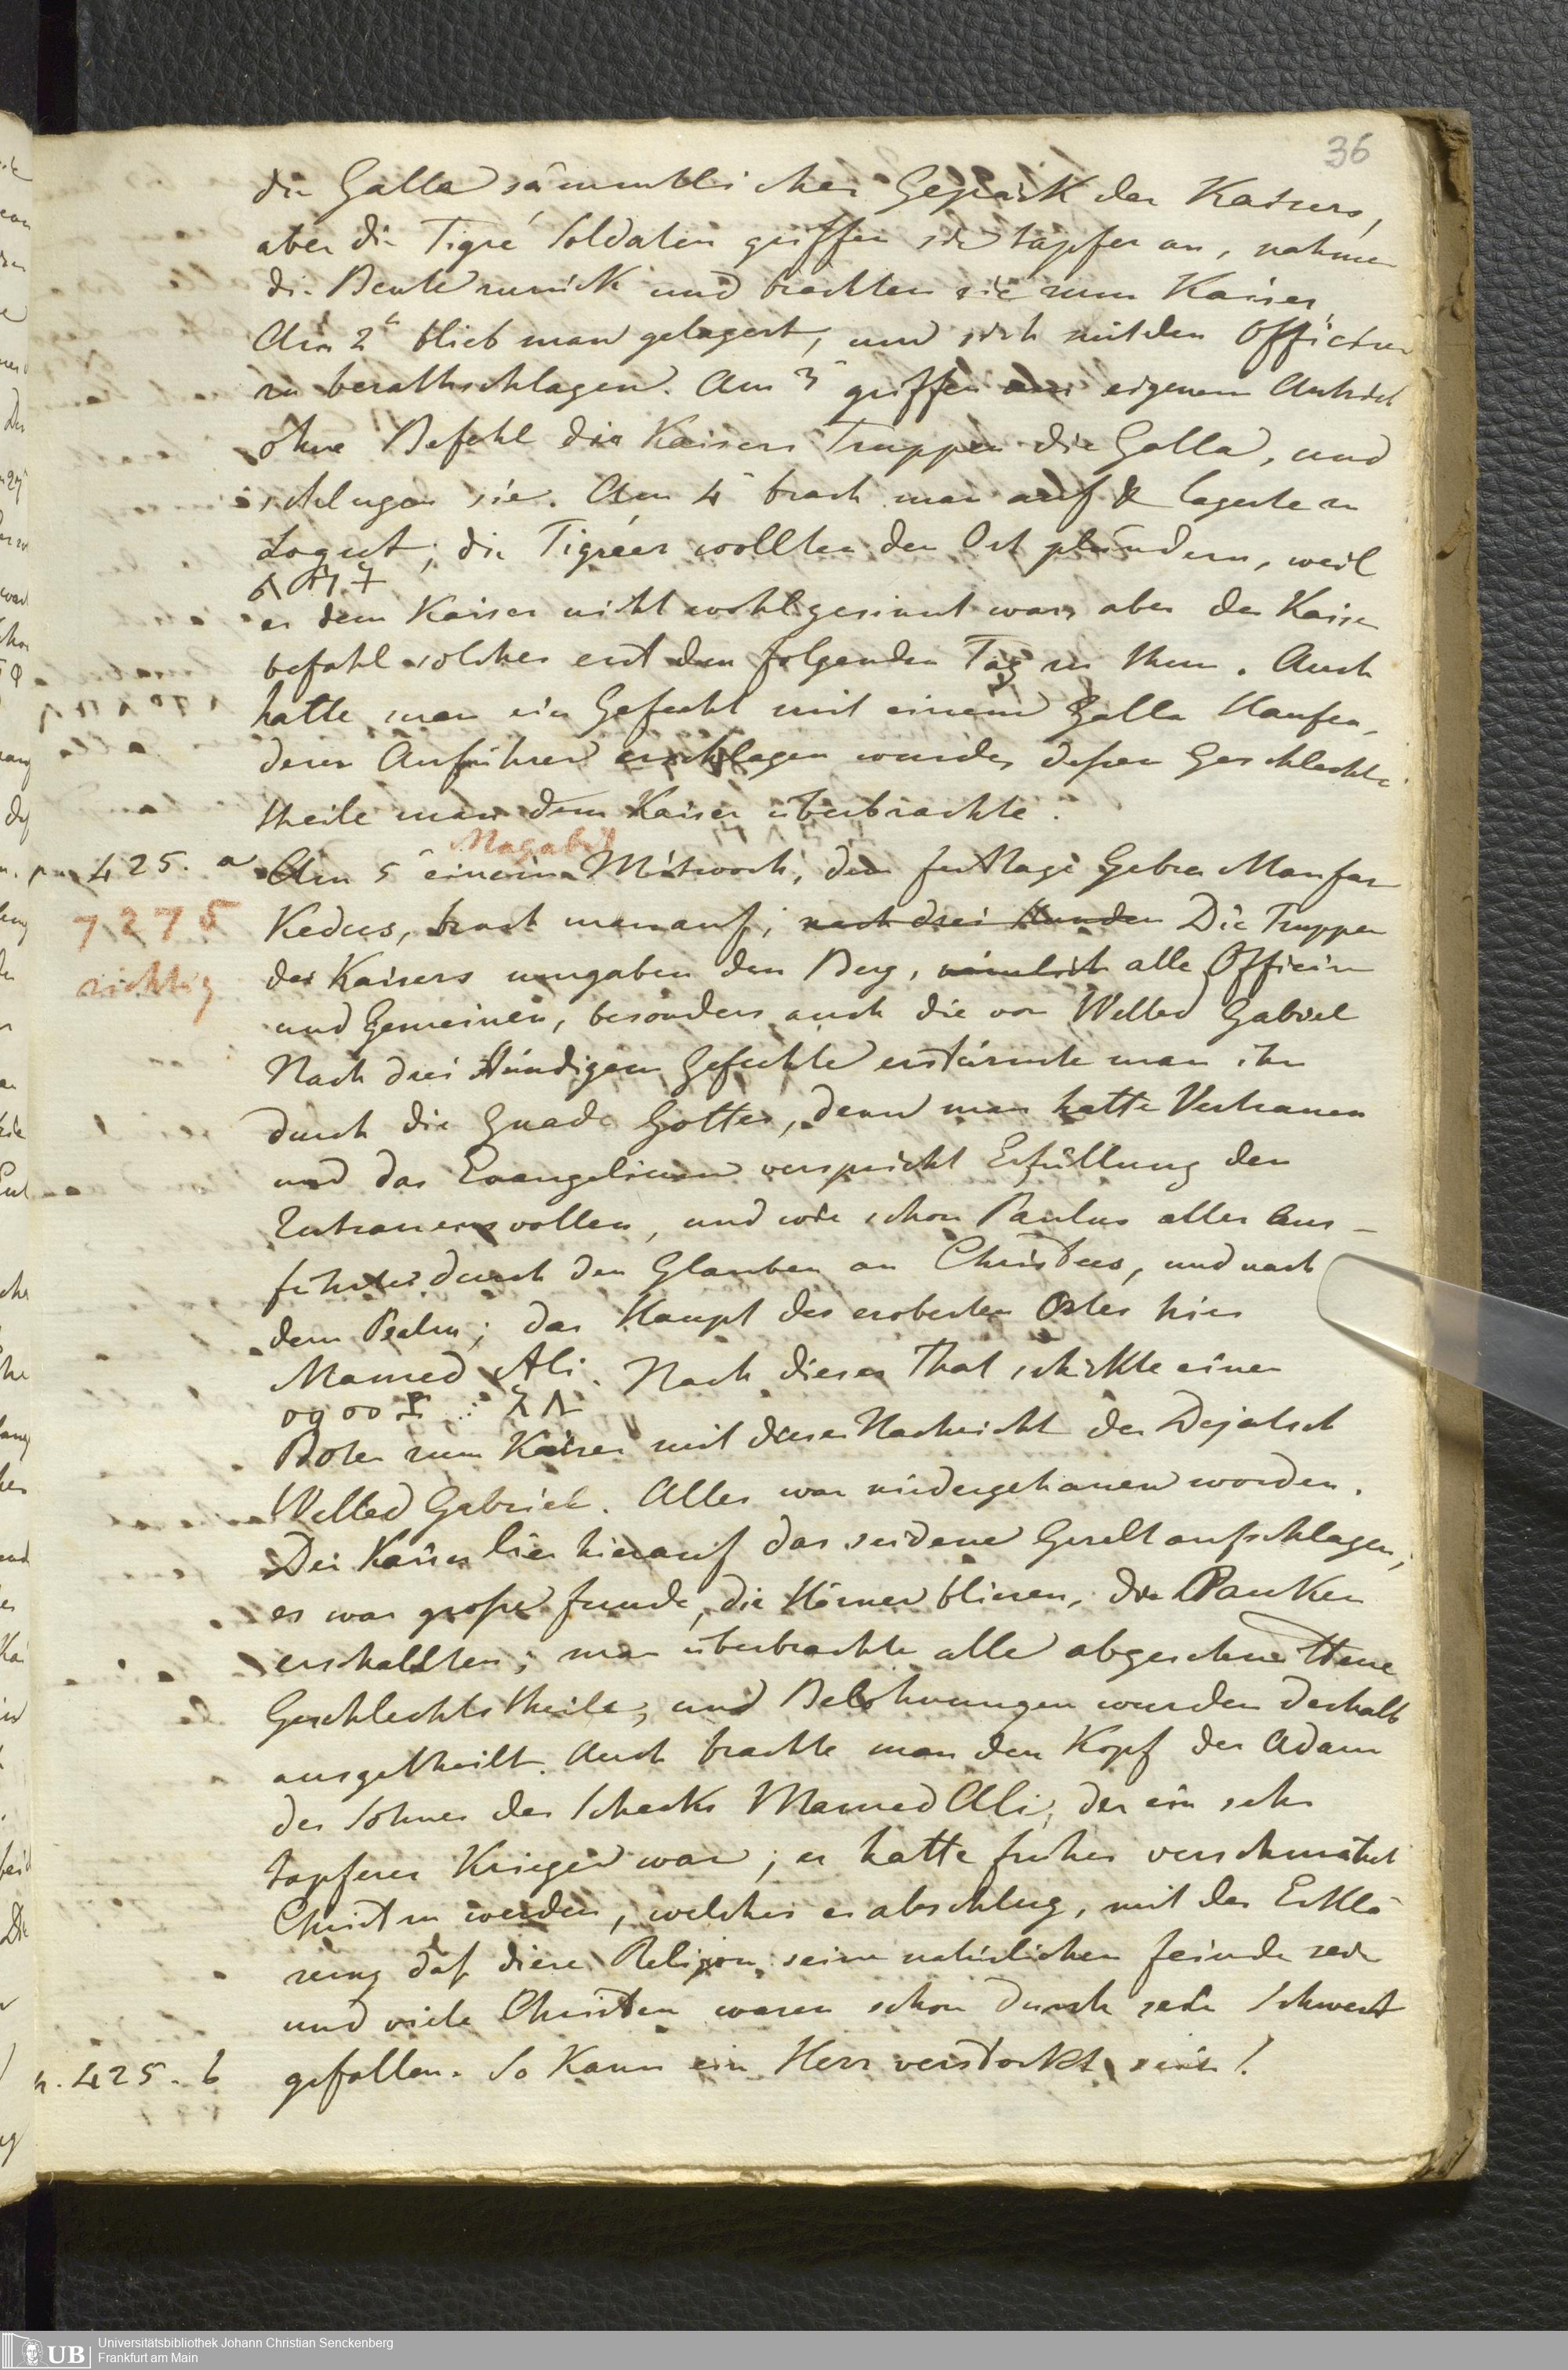 36
die Galla sämmtliches Gepäck des Kaisers,
aber die Tigré Soldaten griffen sie tapfer an, nahmen
die Beute zurück und brachten sie zum Kaiser
Am 2ᵗ blieb man gelagert, und sich mit den Officiren
zu berathschlagen. Am 3ᵗ griffen aus eigenem Antrieb
ohne Befehl des Kaisers Truppen die Galla, und
schlugen sie. Am 4ᵗ brach man auf & lagerte zu
Logut; die Tigréer wollten den Ort plündern, weil
er dem Kaiser nicht wohlgesinnt war, aber der Kaiser
befahl solches erst den folgenden Tag zu thun. Auch
hatte man ein Gefecht mit einem Galla Haufen,
deren Anführer erschlagen wurde, dessen Geschlechts
theile man dem Kaiser überbrachte.
Magabit
p. 425. a Am 5ᵗ einem Mitwoch, dem festtage Gebra Manfas
7275 Kedus, brach man auf; nach drei Stunden Die Truppen
richtig des Kaisers umgaben den Berg, nämlich alle Officire
und Gemeinen, besonders auch die von Welled Gabriel
Nach drei stündigem Gefechte erstürmte man ihn
durch die Gnade Gottes, denn man hatte Vertrauen
und das Evangelium verspricht Erfüllung den
Zutrauensvollen, und wie schon Paulus alles aus-
führte durch den Glauben an Christus, und nach
dem Psalm; das Haupt des eroberten Ortes hies
Mamed Ali. Nach dieser That schickte einen
Boten zum Kaiser mit dieser Nachricht der Dejatsch
Welled Gabriel. Alles war niedergehauen worden.
Der Kaiser lies hierauf das seidene Gezelt aufschlagen,
es war große freude, die Hörner bliesen, die Pauken
erschallten; man überbrachte alle abgeschnittene
Geschlechtstheile, und Belohnungen wurden deshalb
ausgetheilt. Auch brachte man den Kopf des Adam
des Sohnes des Schechs Mamed Ali, der ein sehr
tapferer Krieger war; er hatte früher verschmähet
Christ zu werden, welches er abschlug, mit der Erklä
rung daß diese Religion seine natürlichen feinde seie
und viele Christen waren schon durch sein Schwert
p. 425. b gefallen. So kann ein Herz verstockt sein!
UB
Universitätsbibliothek Johann Christian Senckenberg
Frankfurt am Main